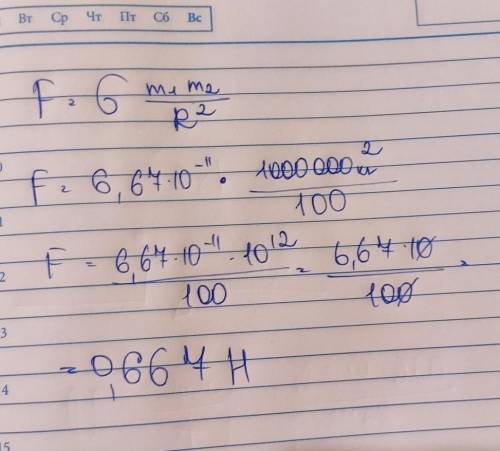 Вт Ср Чт Пт Сб Вс
F = G m₁ m₂ / R²
F = 6,67·10⁻¹¹ · 1000 000² / 100
F = 6,67·10⁻¹¹·10¹² / 100 = 6,67·10 / 100 =
= 0,667 Н